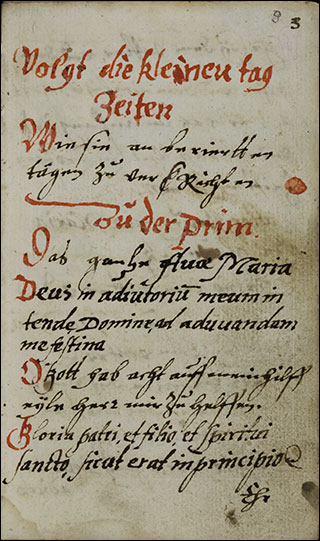 3 3
Volgt die kleinen tag
Zeiten
Wie sie an beriertten
tägen zu verrichten
Zu der Prim.
Das gantze Ave Maria
Deus in adiutoriū meum in
tende Domine, ad adiuvandam
me festina
O Gott hab acht auff mein hilff
eyle herr mir zu helffen.
Gloria patri, et filio, et spiritui
sancto, sicut erat in principio